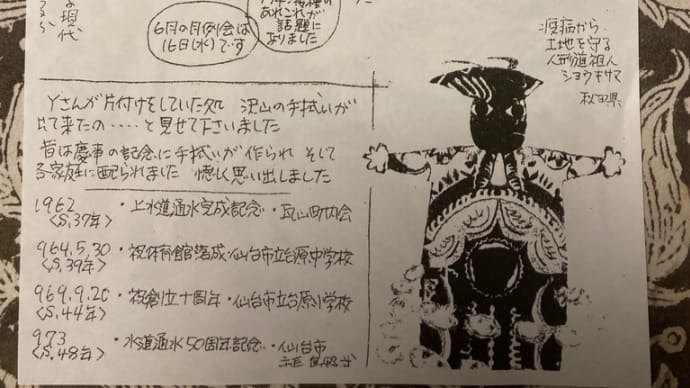 な現代
6月の月例会は
16日(水)です
あれこれが
話題に
なりました
疫病から
土地を守る
人形道祖人
ショウキサマ
秋田県
Yさんが片付けをしていた処 沢山の手拭いが
出て来たの・・・・と見せて下さいました
昔は慶事の記念に手拭いが作られ そして
各家庭に配られました 懐しく思い出しました
1962 ・上水道通水完成記念・瓦山町内会
<S.37年>
964.5.30 ・祝体育館落成・仙台市立台原中学校
<S.39年>
969.9.20 ・祝創立十周年・仙台市立台原小学校
<S.44年>
973 ・水道通水50周年記念・仙台市
<S.48年>